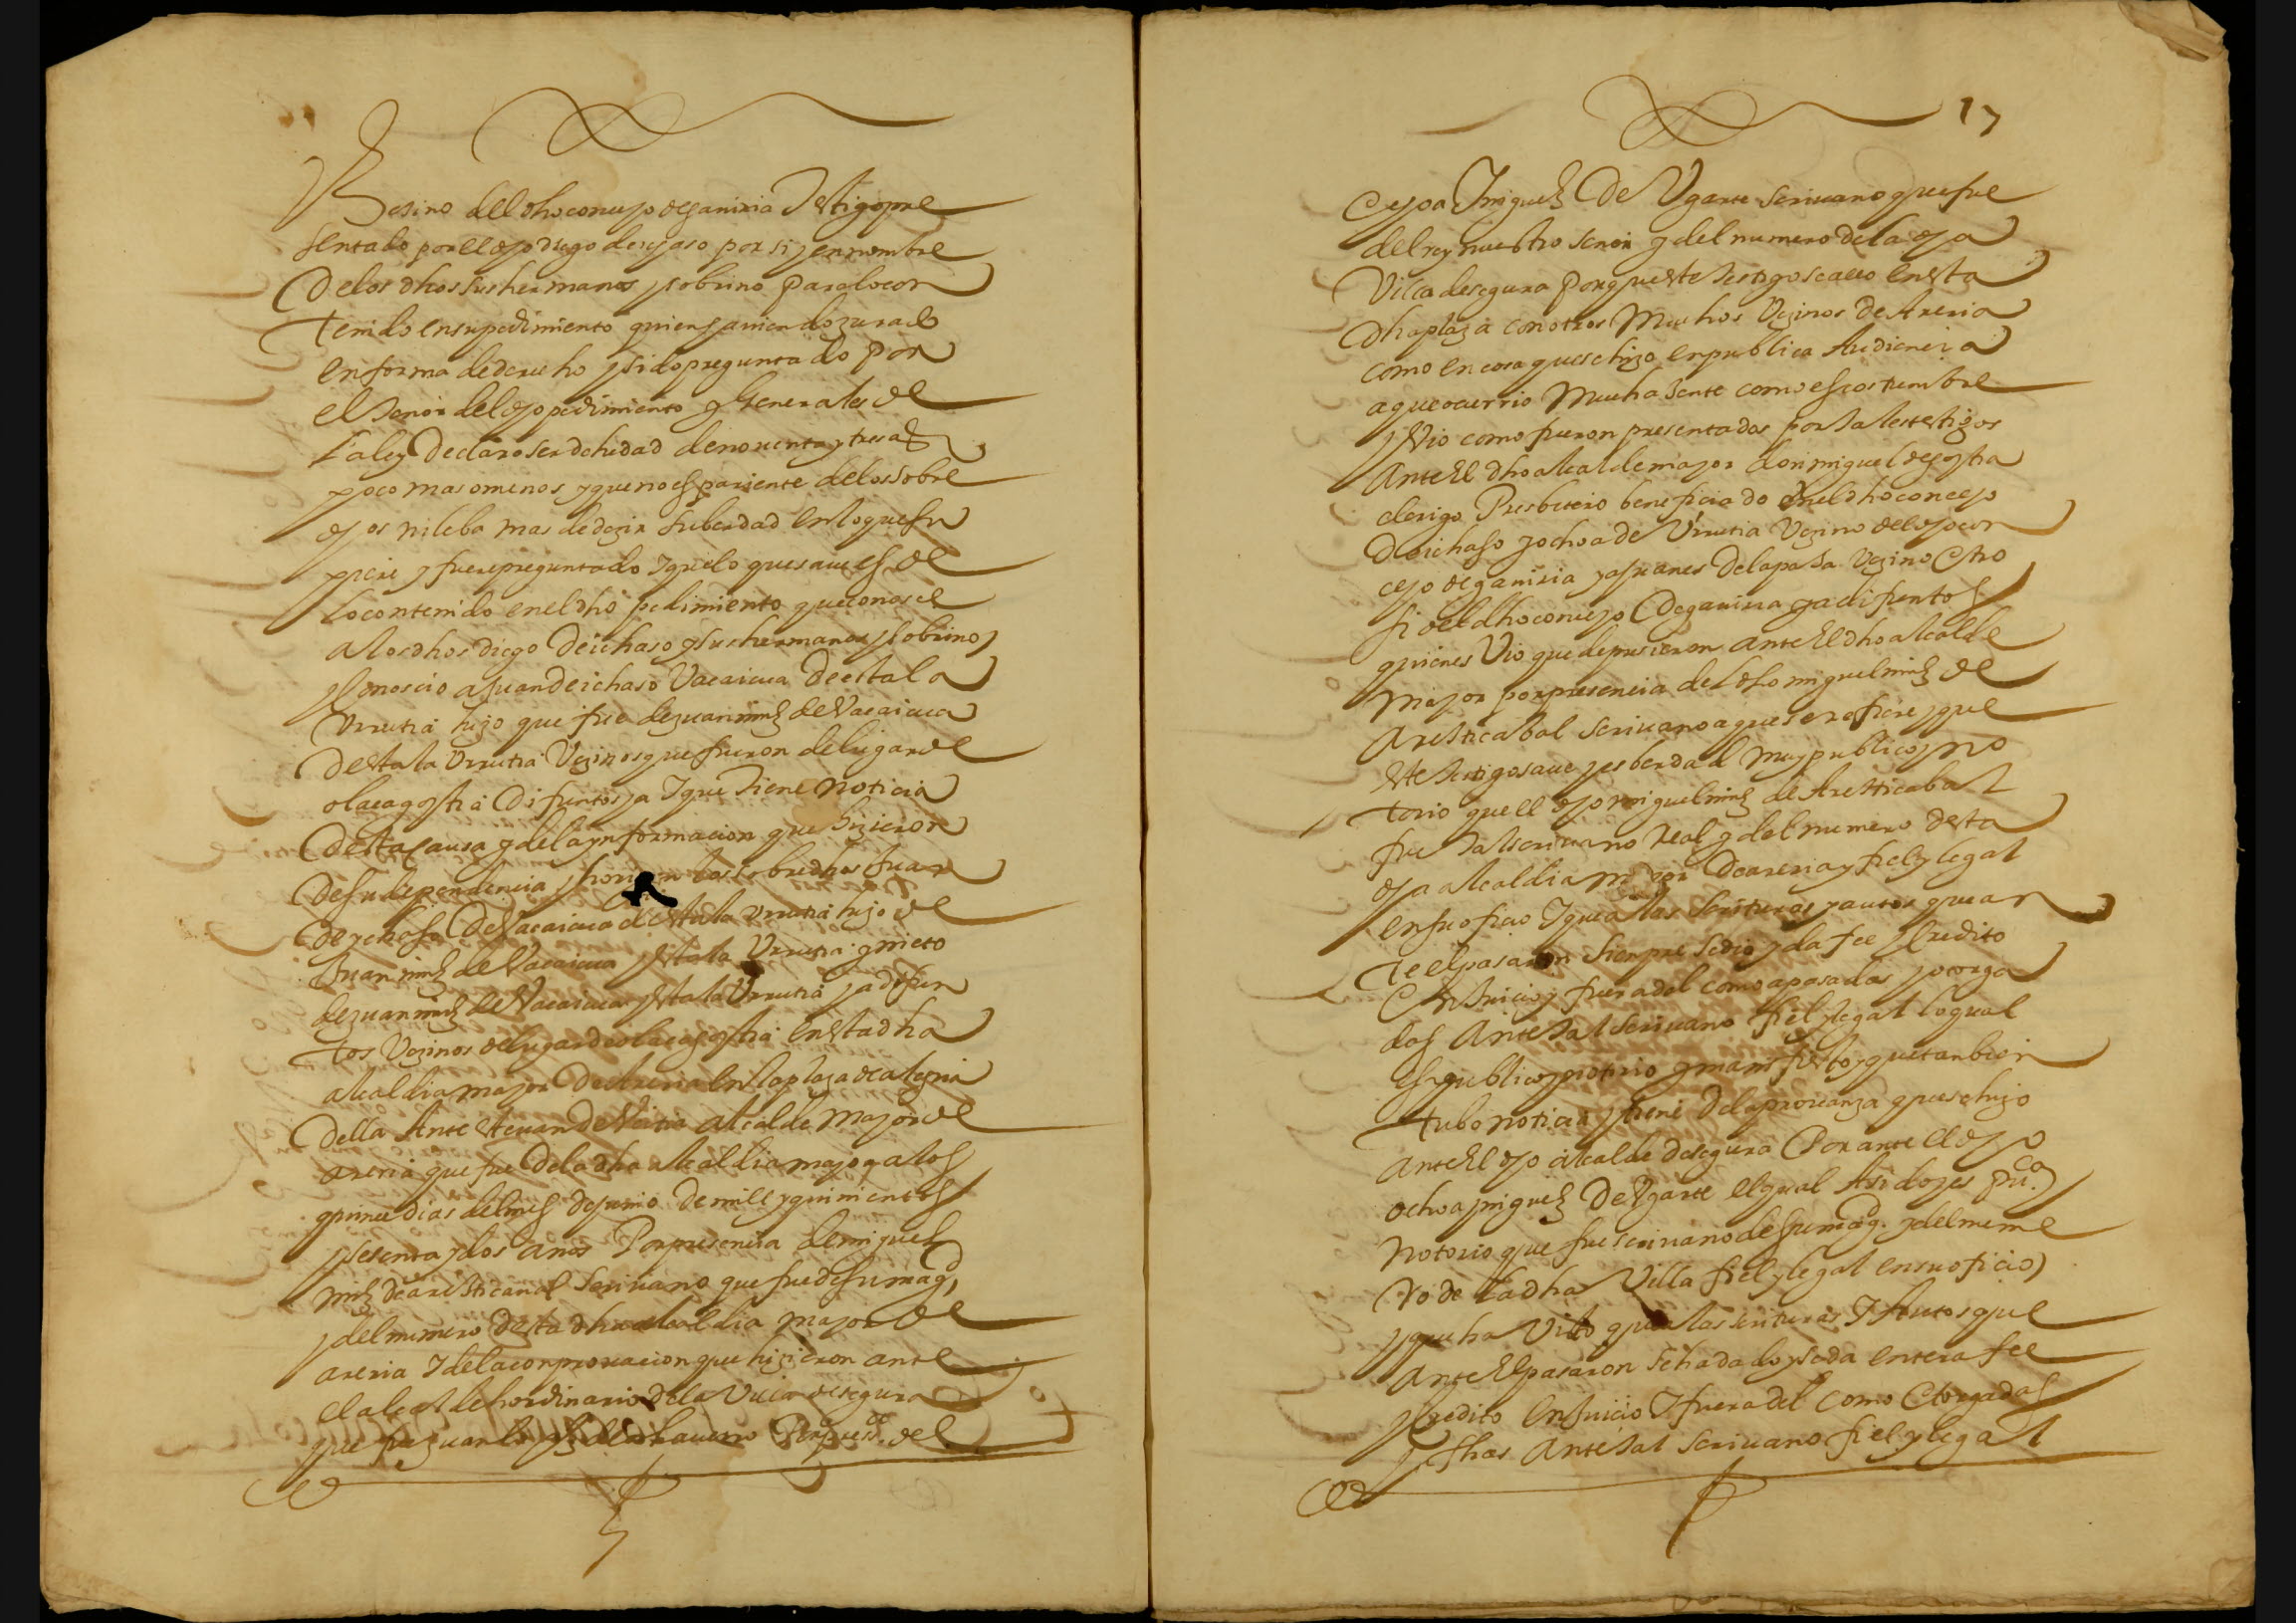 Vesino del dho concejo de gaviria Testigo pre
sentado por el dho diego de ychaso por si y en nombre
De los dhos sus hermanos y sobrino para lo con
Tenido en su pedimiento quien haviendo jurado
en forma de derecho y sido preguntado por
el Tenor del dho pedimiento y generales de
la ley Declaro ser de hedad de noventa y tres as
poco mas o menos y que no es pariente de los sobre
dhos ni leba mas de dezir su berdad en lo que su
piere y fuere preguntado Y que lo que save es de
lo contenido en el dho pedimiento que conosce
a los dhos diego De ichaso y sus hermanos y sobrino
y conoscio a Juan de ichaso Vacaicua De estala
Urrutia hijo que fue de juan miñz de Vacaicua
De stala Urrutia Vezinos que fueron del lugar de
olacagostia Difuntos ya Y que Tiene noticia
Desta causa y de la ynformacion que hizieron
De su dependencia y los sobredhos Juan
De ychaso De Vacaicua de stala Urrutia hijo de
Juan miñz de Vacaicua stala Urrutia y nieto
de juan miñz de Vacaicua stala Urrutia ya difun
tos Vezinos del lugar de olacagostia en esta dha
alcaldia mayor De areria en la plaza de alegria
Della Ante stevan de alcalde mayor de
areria que fue De la dha alcaldia mayor a los
quince dias del mes de junio De mill y quinientos
y sesenta y dos años Por presencia de miguel
miñz de aresticaval Scrivano que fue de su magd
y del numero desta dha alcaldia mayor de
areria Y de la conprovacion que hizieron ante
el alcalde hordinario De la Villa de segura
que fue juan Por preso. del
17
Ochoa Yñiguez De Ugarte Scrivano que fue
del rey nuestro Señor y del numero de la dha
Villa de segura porque este Testigo se allo en esta
dha plaza con otros Muchos Vezinos de Areria
como en cosa que se hizo en publica Audiencia
a que ocurrio Mucha Jente como es costumbre
y Vio como fueron presentados por Tales testigos
Ante el dho alcalde mayor don miguel de gostia
clerigo Presbitero beneficiado en el dho concejo
De ichaso y ochoa de Urrutia Vezino del dho con
cejo de gaviria y a Juanes De la pasa Vezino Otro
si del dho concejo De gaviria ya difuntos
quienes Vio que depusieron ante el dho alcalde
Mayor por presencia del dho miguel miñz de
Aresticabal Scrivano a que se refiere y que
este Testigo save y es berdad Muy publico y no
torio que el dho miguel miñz de Aresticabal
fue Tal scrivano Real y del numero desta
dha alcaldia mayor De areria y fiel y legal
en su oficio Y que a las Scrituras y autos que an
te el pasaron Sienpre se dio y da fee y Credito
En Juicio y fuera del como a pasadas y otorga
das Ante Tal Scrivano fiel y legal lo qual
es publico y notorio y manifiesto y que tanbien
Tubo noticia y tiene De la provanza que se hizo
ante el dho alcalde de segura Por ante el dho
ochoa yñiguez De Ugarte el qual A sido y es puco
Notorio que fue scrivano de su magd. y del nume
Ro de La dha Villa fiel y legal en su oficio
y que ha Visto que a las scrituras Y Autos que
Ante el pasaron se ha dado y se da entera fee
y Credito En Juicio Y fuera del Como Otorgadas
y fhas Ante Tal Scrivano fiel y legal